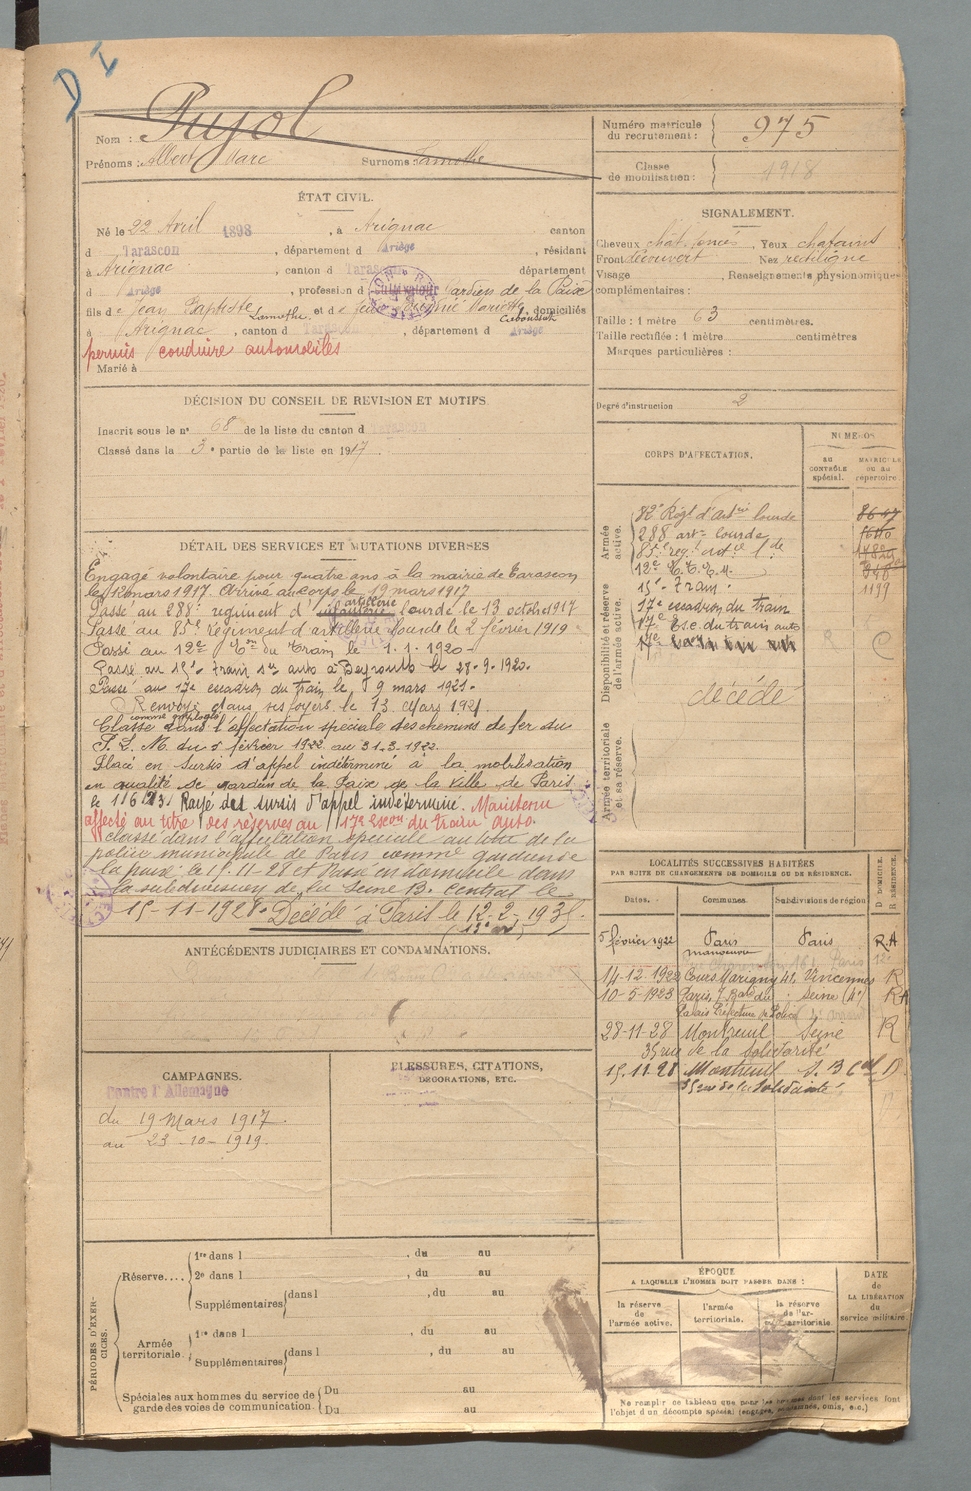 D I
Nom : Pujol
Prénoms : Albert Marc Surnoms : Lamothe
Numéro matricule du recrutement : 975
Classe de mobilisation : 1918
ÉTAT CIVIL.
Né le 22 Avril 1898, à Arignac canton
d Tarascon, département d Ariège, résidant
à Arignac, canton d Tarascon département
d Ariège, profession d cultivateur Gardien de la Paix
fils de Jean Baptiste Lamothe et de domiciliés
à Arignac, canton d Tarascon, département d Ariège
permis conduire automobiles
Marié à
SIGNALEMENT.
Cheveux chât. foncés, Yeux chatains
Front découvert Nez rectiligne
Visage , Renseignements physionomiques
complémentaires :
Taille : 1 mètre 63 centimètres.
Taille rectifiée : 1 mètre centimètres
Marques particulières :
Degré d'instruction 2
DÉCISION DU CONSEIL DE REVISION ET MOTIFS.
Inscrit sous le n° 68 de la liste du canton d Tarascon
Classé dans la 3e partie de la liste en 1917.
CORPS D'AFFECTATION.
NUMÉROS
au contrôle spécial.
matricule ou au répertoire.
Armée active.
Régt d'artrie lourde
288 artie lourde
85e rég. artie lde
12e E.T.E.M.
15e Train 1199
Disponibilité et réserve de l'armée active.
17e escadron du train
17e Esc. du train auto
décédé
Armée territoriale et sa réserve.
DÉTAIL DES SERVICES ET MUTATIONS DIVERSES
Engagé volontaire pour quatre ans à la mairie de Tarascon
le mars 1917. Arrivé au corps le 19 mars 1917
Passé au 288e regiment d'artillerie lourde le 13 octobre 1917
Passé au 85e régiment d'artillerie lourde le 2 février 1919
Passé au 12e Eon du Train le 1.1.1920
Passé au 15e Train auto à Beyrouth le 28.9.1920.
Passé au 17e escadron du train le 9 mars 1921.
Renvoyé dans ses foyers le 13 Mars 1921.
Classé dans l'affectation spéciale des chemins de fer du
P. L. M. du 5 février 1922 au 31.3.1922.
Placé en sursis d'appel indéterminé à la mobilisation
en qualité de Gardien de la Paix de la ville de Paris
le Rayé des sursis d'appel indéterminé. Maintenu
affecté au titre des réserves au 17e Escon du train auto.
classé dans l'affectation spéciale au titre de la
police municipale de Paris comme gardien de
la paix le 15-11-28 et Passé en domicile dans
la subdivision de la Seine B. Central le
15-11-1928. Décédé à Paris le 12-2-1935
LOCALITÉS SUCCESSIVES HABITÉES
PAR SUITE DE CHANGEMENTS DE DOMICILE OU DE RÉSIDENCE.
Dates. Communes. Subdivisions de région D. DOMICILE R. RÉSIDENCE.
5 février 1922 Paris Paris R.A
14-12-1922 Cours Marigny 41, Vincennes R
10-5-1923 Paris, 7 Bard du Seine (4e)
Palais Préfecture de Police
28-11-28 Montreuil Seine R
35 rue de la Solidarité
15.11.28 Montreuil S. B Cal D
35 rue de la Solidarité
ANTÉCÉDENTS JUDICIAIRES ET CONDAMNATIONS.
CAMPAGNES.
Contre l'Allemagne
du 19 Mars 1917.
au 23-10-1919.
BLESSURES, CITATIONS, DÉCORATIONS, ETC.
PÉRIODES D'EXERCICES.
Réserve....
1re dans l , du au
2e dans l , du au
Supplémentaires dans l , du au
Armée territoriale.
1re dans l , du au
Supplémentaires dans l , du au
Spéciales aux hommes du service de garde des voies de communication.
Du au
Du au
ÉPOQUE
A LAQUELLE L'HOMME DOIT PASSER DANS :
la réserve de l'armée active.
l'armée territoriale.
la réserve de l'armée territoriale.
DATE
de
LA LIBÉRATION
du
service militaire.
Ne remplir ce tableau que pour les hommes dont les services font
l'objet d'un décompte spécial (engagés, omis, etc.)